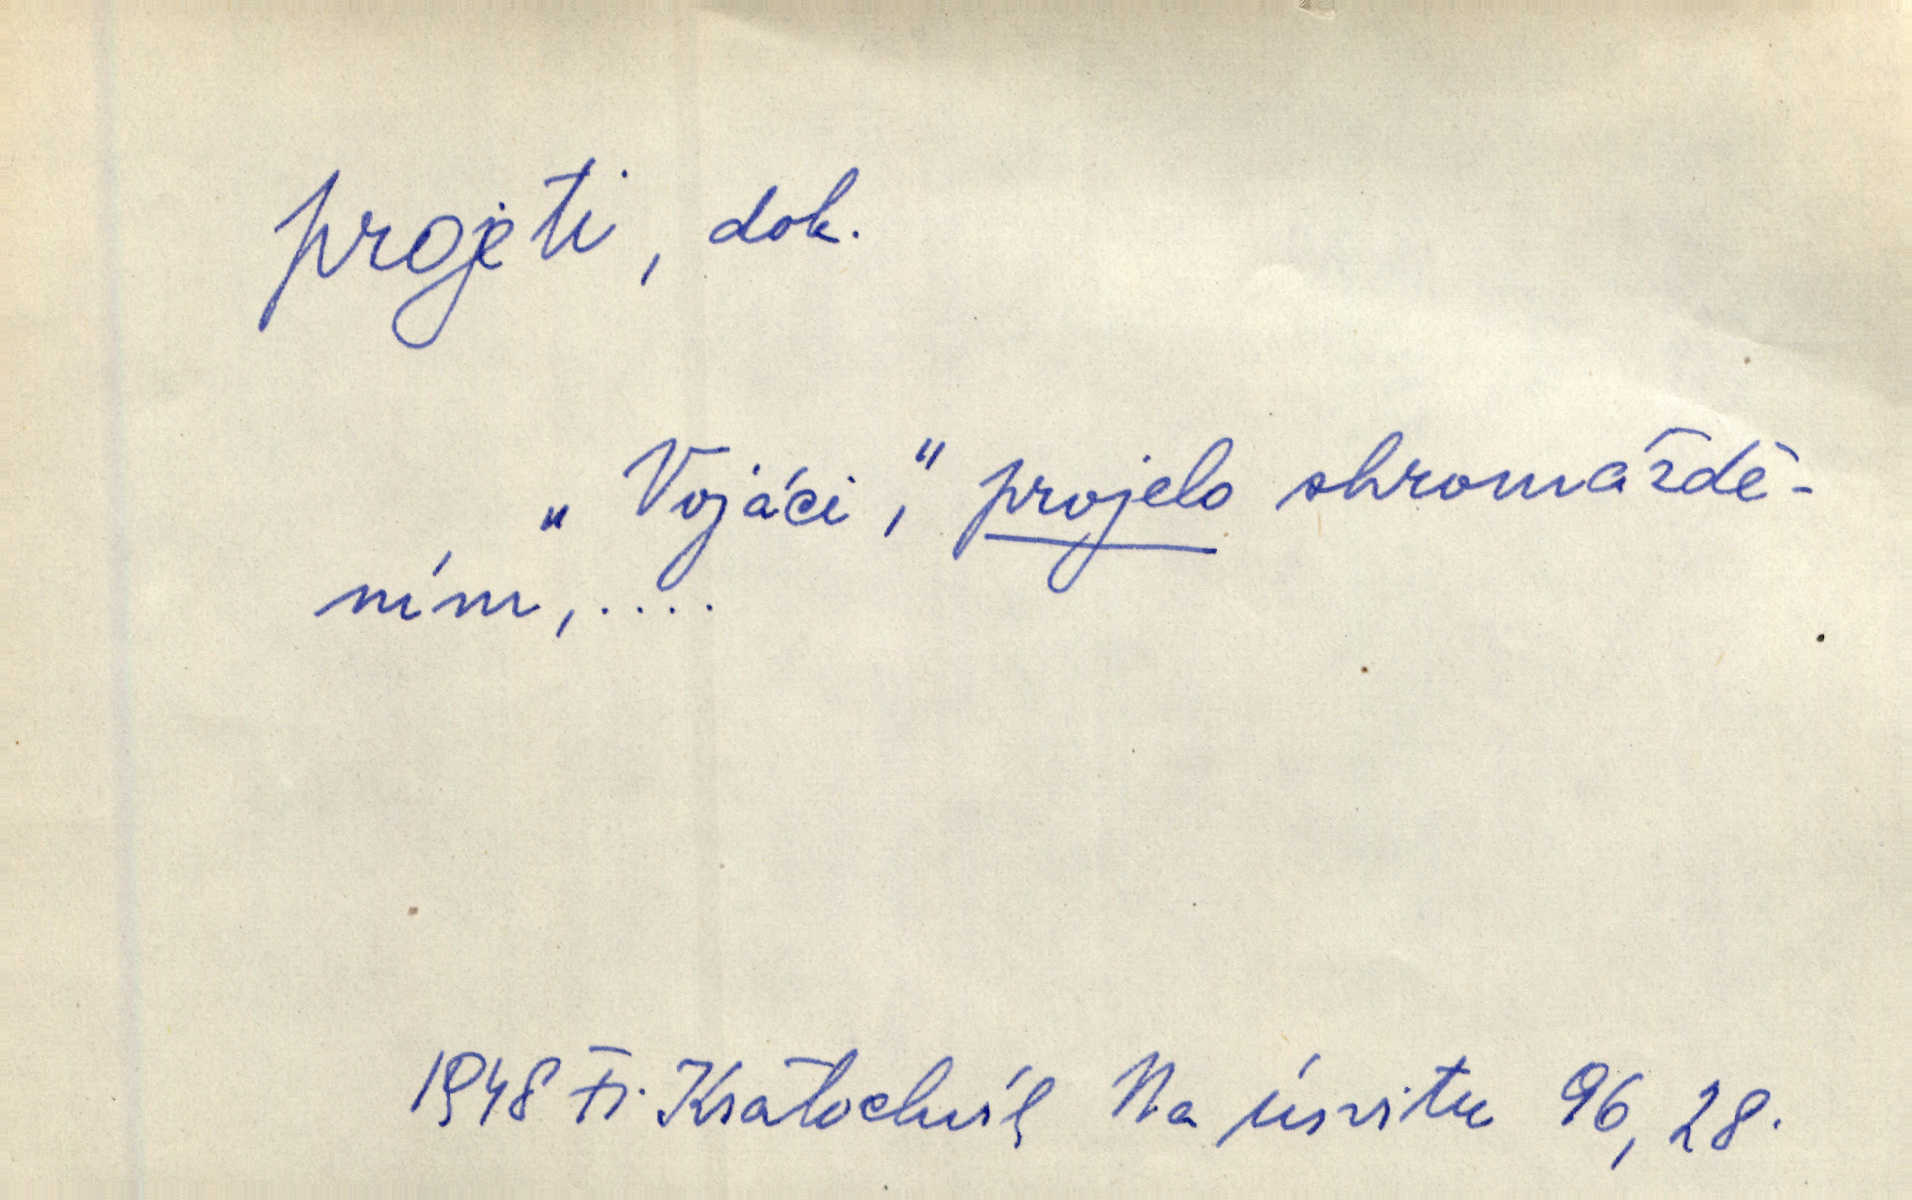 projeti, dok.
„Vojáci,“ projelo shromáždě-
ním,....
1948 Fr. Kratochvíl Na úsvitu 96, 28.